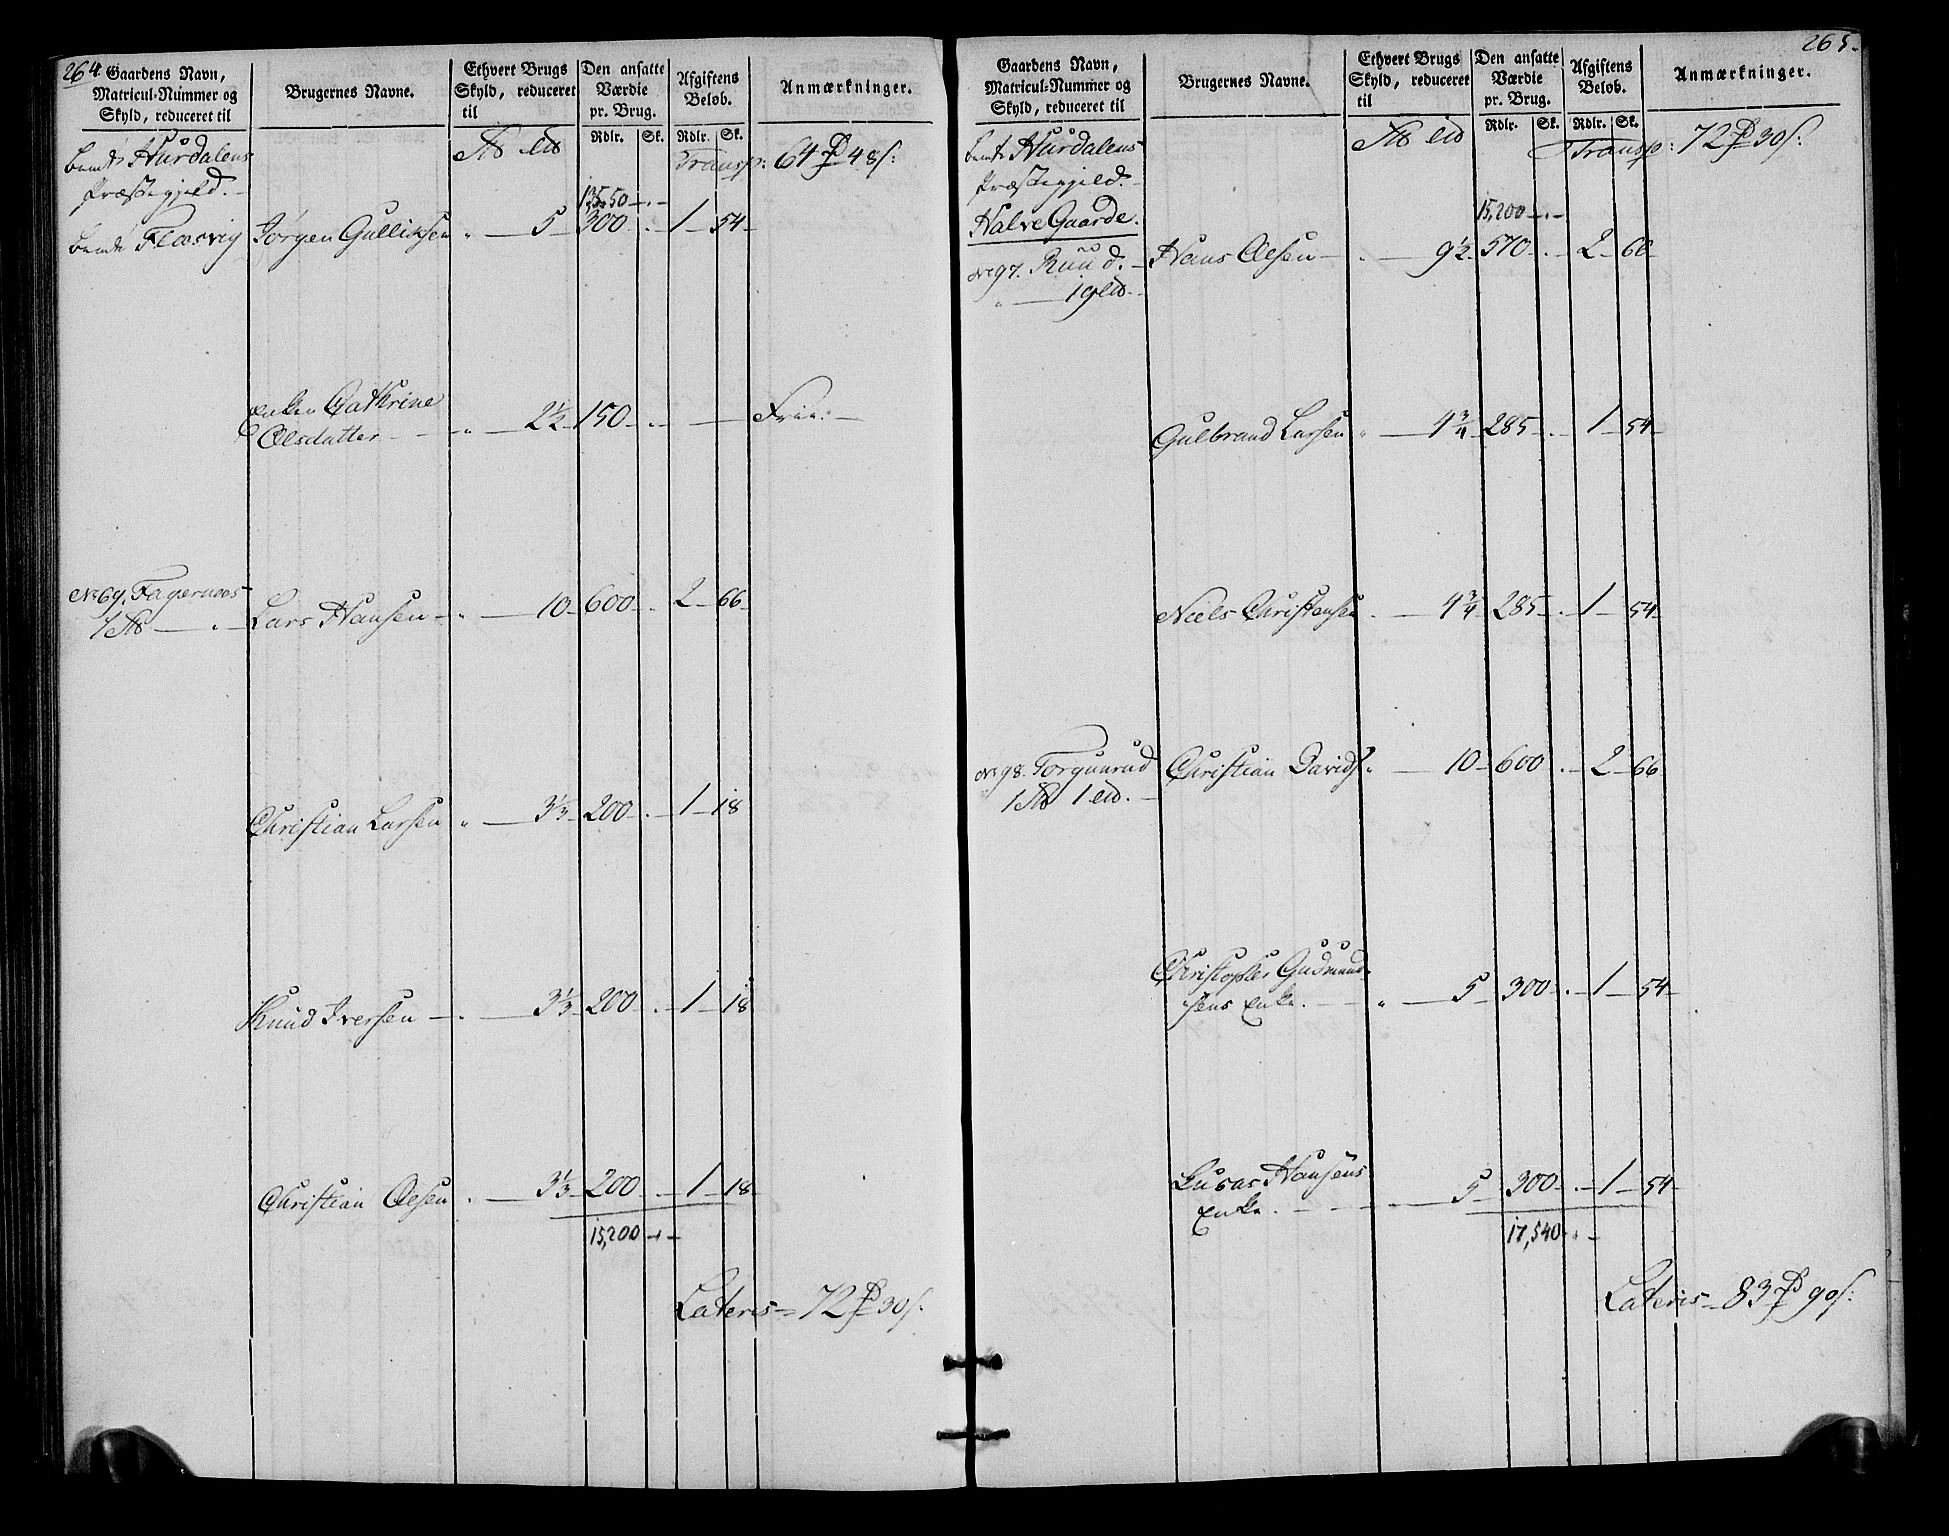 264
Gaardens Navn,
Matricul-Nummer og
Skyld, reduceret til
Brugernes Navne.
Ethvert Brugs
Skyld, reduceret
til
Den ansatte
Værdie
pr. Brug.
Rdlr. Sk.
Afgiftens
Beløb.
Rdlr. Sk.
Anmærkninger.
Hurdalens
Præstegjeld.
Transp: 64 48 s:
13,550
Flæsvig Jørgen Gulliksen 5 300 1 54
Enken Cathrine
Olsdatter 2½ 150 Frie.
No 69. Fagernæs Lars Hansen 10 600 2 66
1
Christian Larsen 3⅓ 200 1 18
Knud Iversen 3⅓ 200 1 18
Christian Olsen 3⅓ 200 1 18
15,200
Lateris 72 30 s:
265.
Gaardens Navn,
Matricul-Nummer og
Skyld, reduceret til
Brugernes Navne.
Ethvert Brugs
Skyld, reduceret
til
Den ansatte
Værdie
pr. Brug.
Rdlr. Sk.
Afgiftens
Beløb.
Rdlr. Sk.
Anmærkninger.
Hurdalens
Præstegjeld.
Transp: 72 30 s:
15,200
Halve Gaarde.
No 97. Ruud. Hans Olsen 9½ 570 2 66
19
Gulbrand Larsen 4¾ 285 1 54
Niels Christensen 4¾ 285 1 54
No 98. Torgunrud Christian Davids 10 600 2 66
1 1
Christopher Gudmund-
sens Enke. 5 300 1 54
Lucas Hansens
Enke. 5 300 1 54
17,540
Lateris 83 90 s: